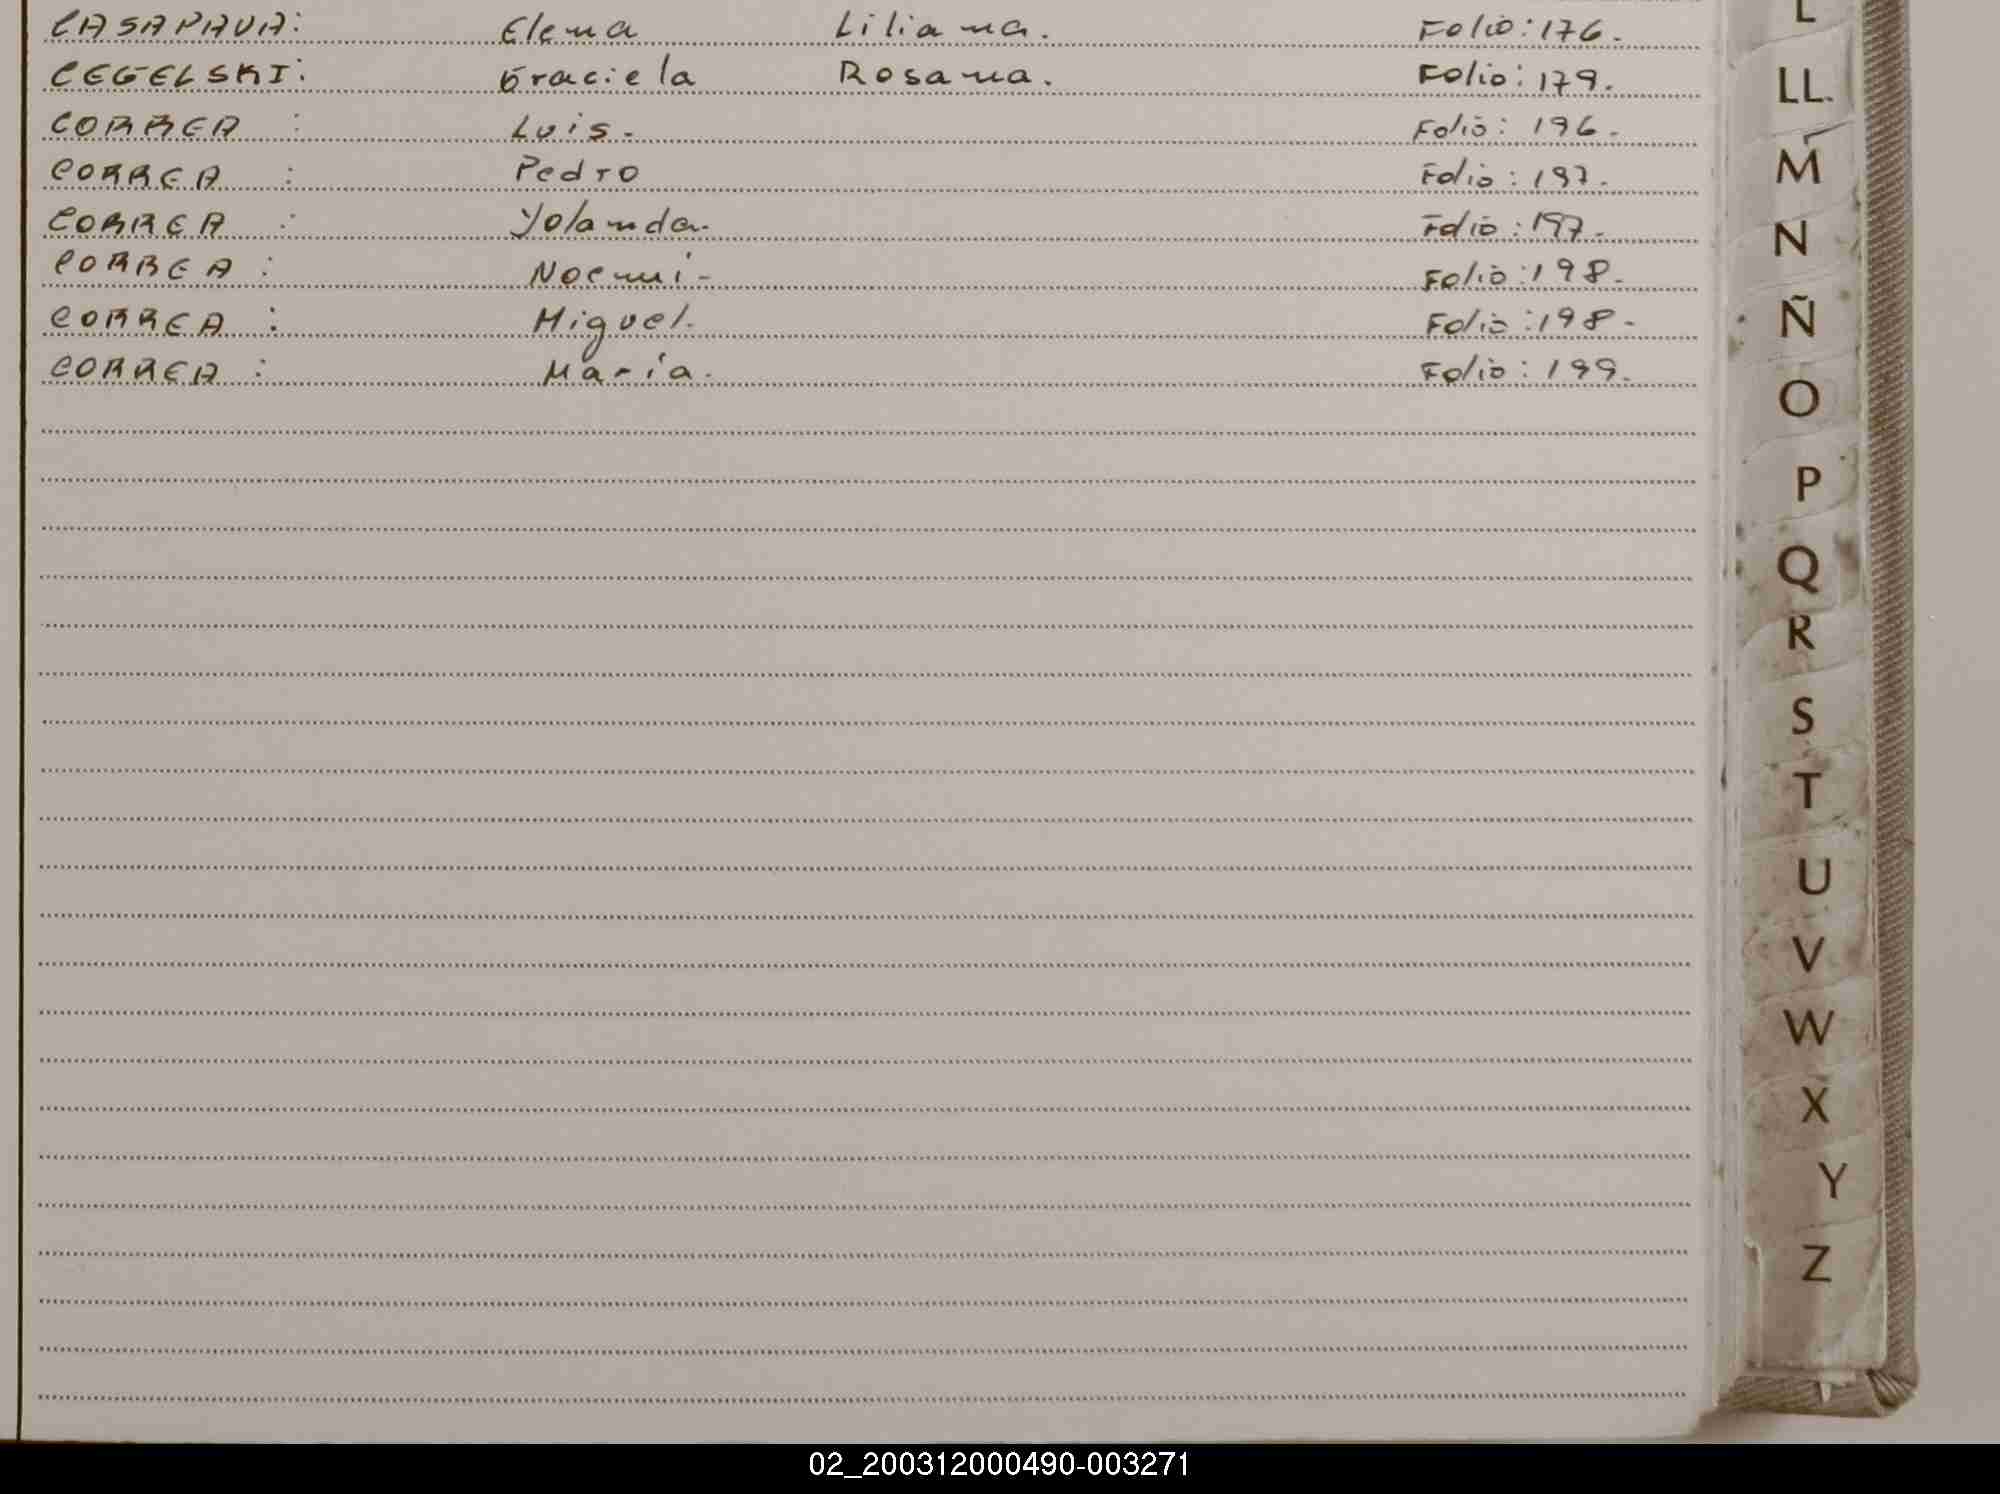 CASAPAVA: Elena Liliana. Folio: 176.
CEGELSKI: Graciela Rosana. Folio: 179.
CORREA : Luis. Folio: 196.
CORREA : Pedro Folio: 197.
CORREA : Yolanda. Folio: 197.
CORREA : Noemi. Folio: 198.
CORREA : Miguel. Folio: 198.
CORREA : María. Folio: 199.
L
LL
M
N
Ñ
O
P
Q
R
S
T
U
V
W
X
Y
Z
02_200312000490-003271